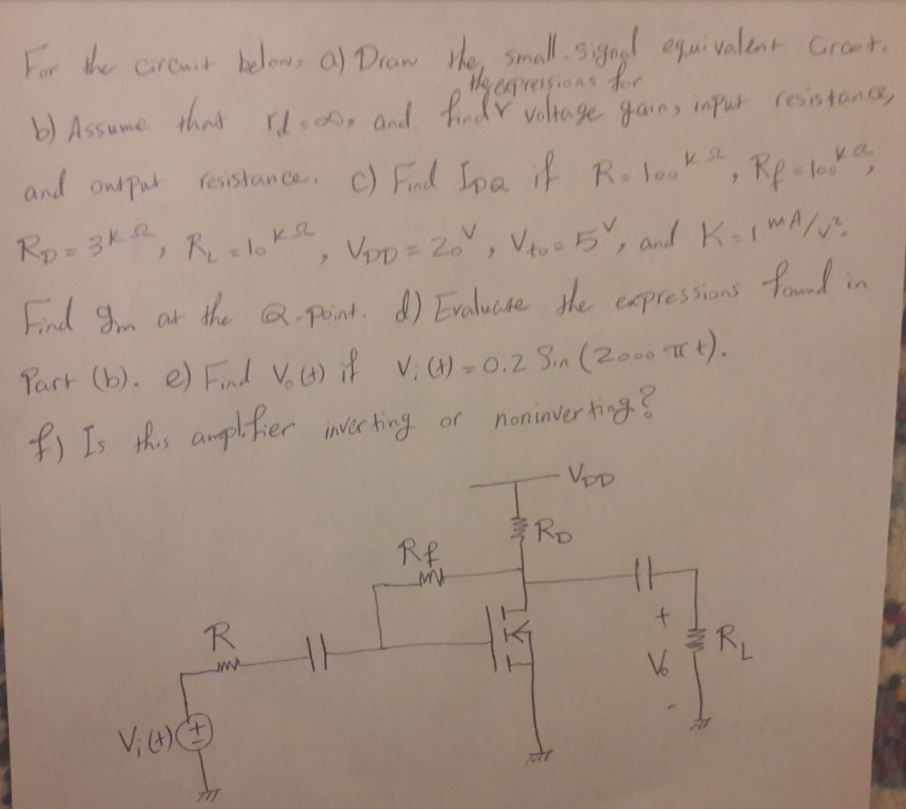 For the circuit below, a) Draw the small-signal equivalent circuit.
the expressions for
b) Assume that rd=∞, and find voltage gain, input resistance,
and output resistance. c) Find IDQ if R=100kΩ, Rf=100kΩ,
RD=3kΩ, RL=10kΩ, VDD=20V, Vto=5V, and K=1mA/V².
Find gm at the Q-point. d) Evaluate the expressions found in
Part (b). e) Find Vo(t) if Vi(t)=0.2 Sin(2000πt).
f) Is this amplifier inverting or noninverting?
VDD
RD
Rf
R
+
Vo
-
RL
Vi(t)
+
-